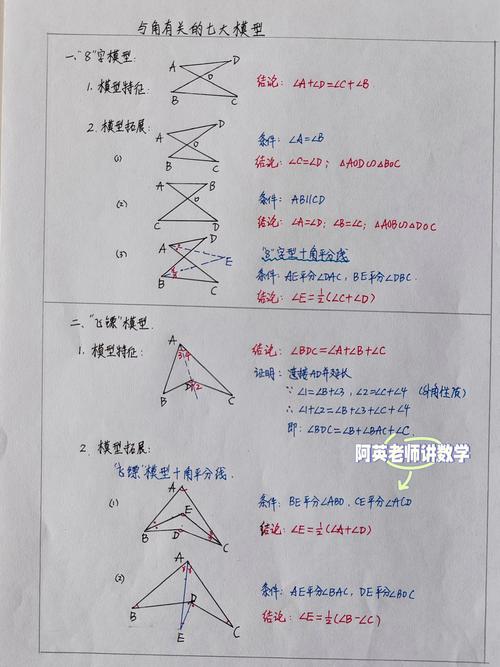 与角有关的七大模型
一."8"字模型:
1. 模型特征:
A D O B C
结论: ∠A+∠D=∠C+∠B
2. 模型拓展:
(1)
A D O B C
条件: ∠A=∠B
结论: ∠C=∠D; △AOD∽△BOC
(2)
A B O C D
条件: AB∥CD
结论: ∠A=∠D; ∠B=∠C; △AOB∽△DOC
(3)
A D E B C
"8"字型+角平分线
条件: AE平分∠DAC, BE平分∠DBC.
结论: ∠E=½(∠C+∠D)
二."飞镖"模型.
1. 模型特征:
A 3 4 D 1 2 B C
结论: ∠BDC=∠A+∠B+∠C
证明: 连接AD并延长
∵∠1=∠B+∠3, ∠2=∠C+∠4 (外角性质)
∴∠1+∠2=∠B+∠3+∠C+∠4
即: ∠BDC=∠B+∠BAC+∠C.
阿英老师讲数学
2. 模型拓展:
"飞镖"模型+角平分线.
(1)
A E D B C
条件: BE平分∠ABD, CE平分∠ACD
结论: ∠E=½(∠A+∠D)
(2)
A B D C E
条件: AE平分∠BAC, DE平分∠BDC
结论: ∠E=½(∠B-∠C)